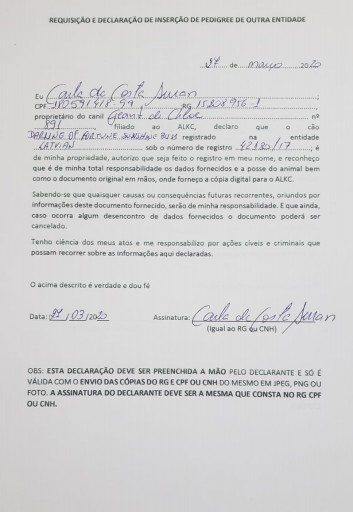 REQUISIÇÃO E DECLARAÇÃO DE INSERÇÃO DE PEDIGREE DE OUTRA ENTIDADE
27 de março 2020
Eu Carla da Costa Suran
CPF 180591418-99, RG 15808956-1
proprietário do canil Géant de Chloe nº
891, filiado ao ALKC, declaro que o cão
DARLING OF FORTUNE SUNSHINE BULS registrado na entidade
LATVIAN sob o número de registro 42130/17, é
de minha propriedade, autorizo que seja feito o registro em meu nome, e reconheço
que é de minha total responsabilidade os dados fornecidos e a posse do animal bem
como o documento original em mãos, onde forneço a cópia digital para o ALKC.
Sabendo-se que quaisquer causas ou consequências futuras recorrentes, oriundos por
informações deste documento fornecido, serão de minha responsabilidade. E que ainda,
caso ocorra algum desencontro de dados fornecidos o documento poderá ser
cancelado.
Tenho ciência dos meus atos e me responsabilizo por ações cíveis e criminais que
possam recorrer sobre as informações aqui declaradas.
O acima descrito é verdade e dou fé
Data: 27/03/2020 Assinatura: Carla da Costa Suran
(Igual ao RG ou CNH)
OBS: ESTA DECLARAÇÃO DEVE SER PREENCHIDA A MÃO PELO DECLARANTE E SÓ É
VÁLIDA COM O ENVIO DAS CÓPIAS DO RG E CPF OU CNH DO MESMO EM JPEG, PNG OU
FOTO. A ASSINATURA DO DECLARANTE DEVE SER A MESMA QUE CONSTA NO RG CPF
OU CNH.